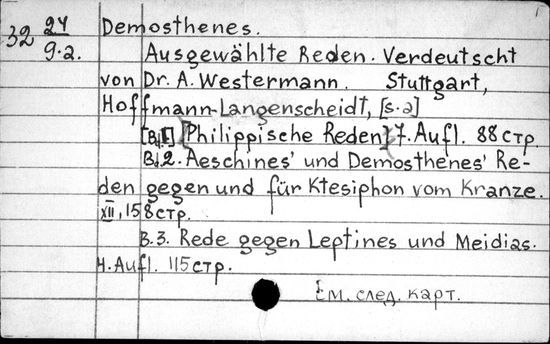 32 24 Demosthenes.
9.2. Ausgewählte Reden. Verdeutscht
von Dr. A. Westermann. Stuttgart,
Hoffmann-Langenscheidt, [s.a]
[Bd 1] [Philippische Reden] 7. Aufl. 88 стр.
Bd. 2. Aeschines' und Demosthenes' Re-
den gegen und für Ktesiphon vom Kranze.
XII, 158 стр.
B. 3. Rede gegen Leptines und Meidias.
4. Aufl. 115 стр.
См. след. карт.